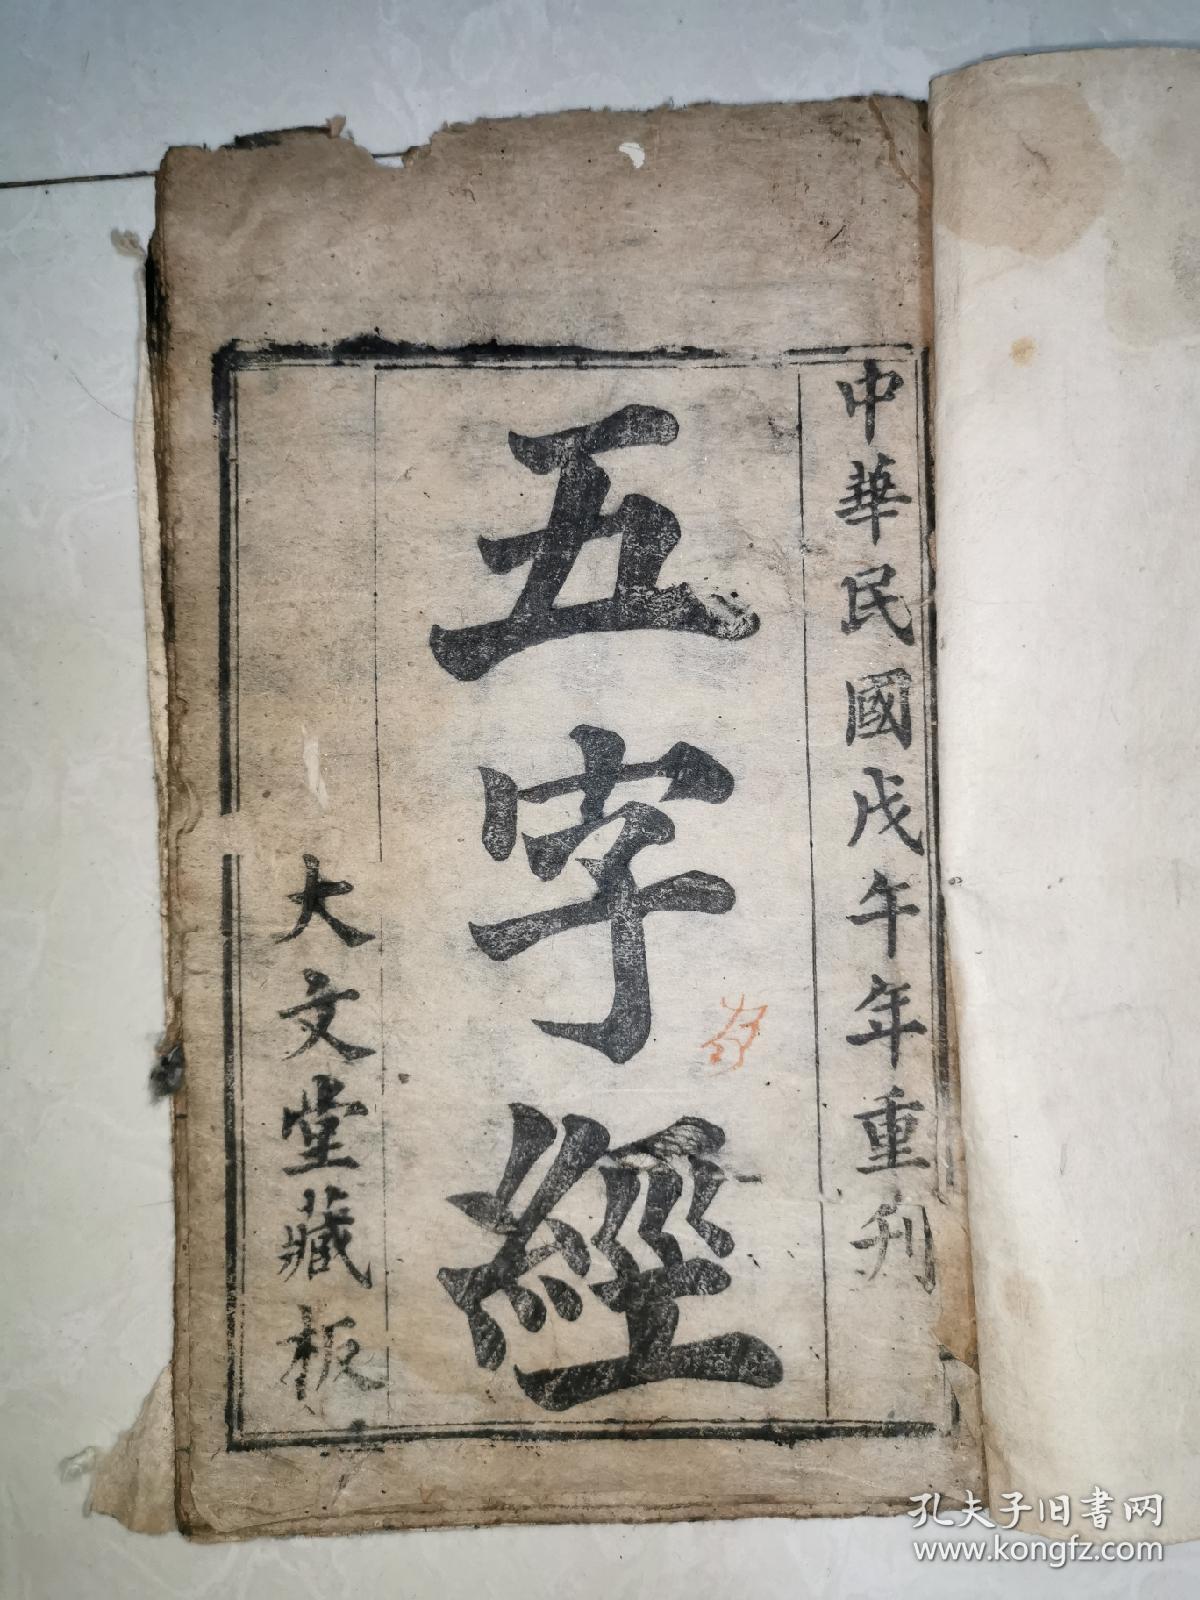 中華民國戊午年重刋
五字經
大文堂藏板
孔夫子旧書网
www.kongfz.com